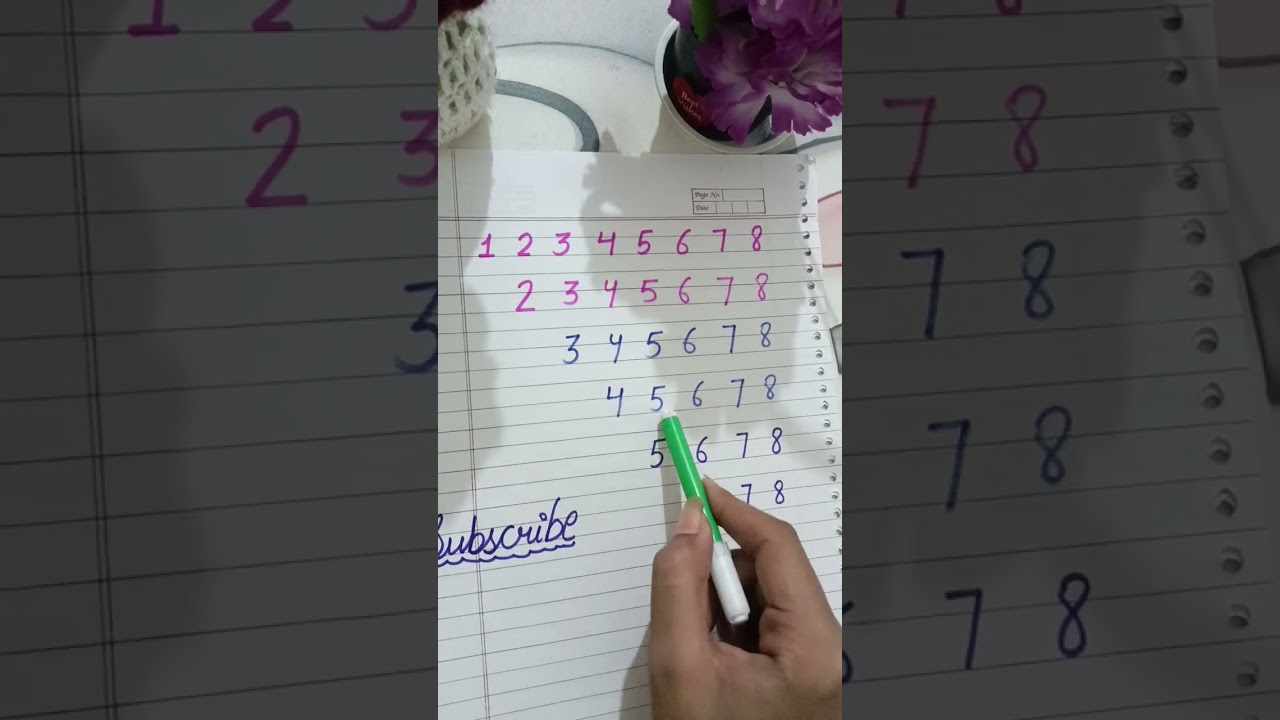 Best
wishes
Page No.
Date
1 2 3 4 5 6 7 8
2 3 4 5 6 7 8
3 4 5 6 7 8
4 5 6 7 8
5 6 7 8
7 8
Subscribe